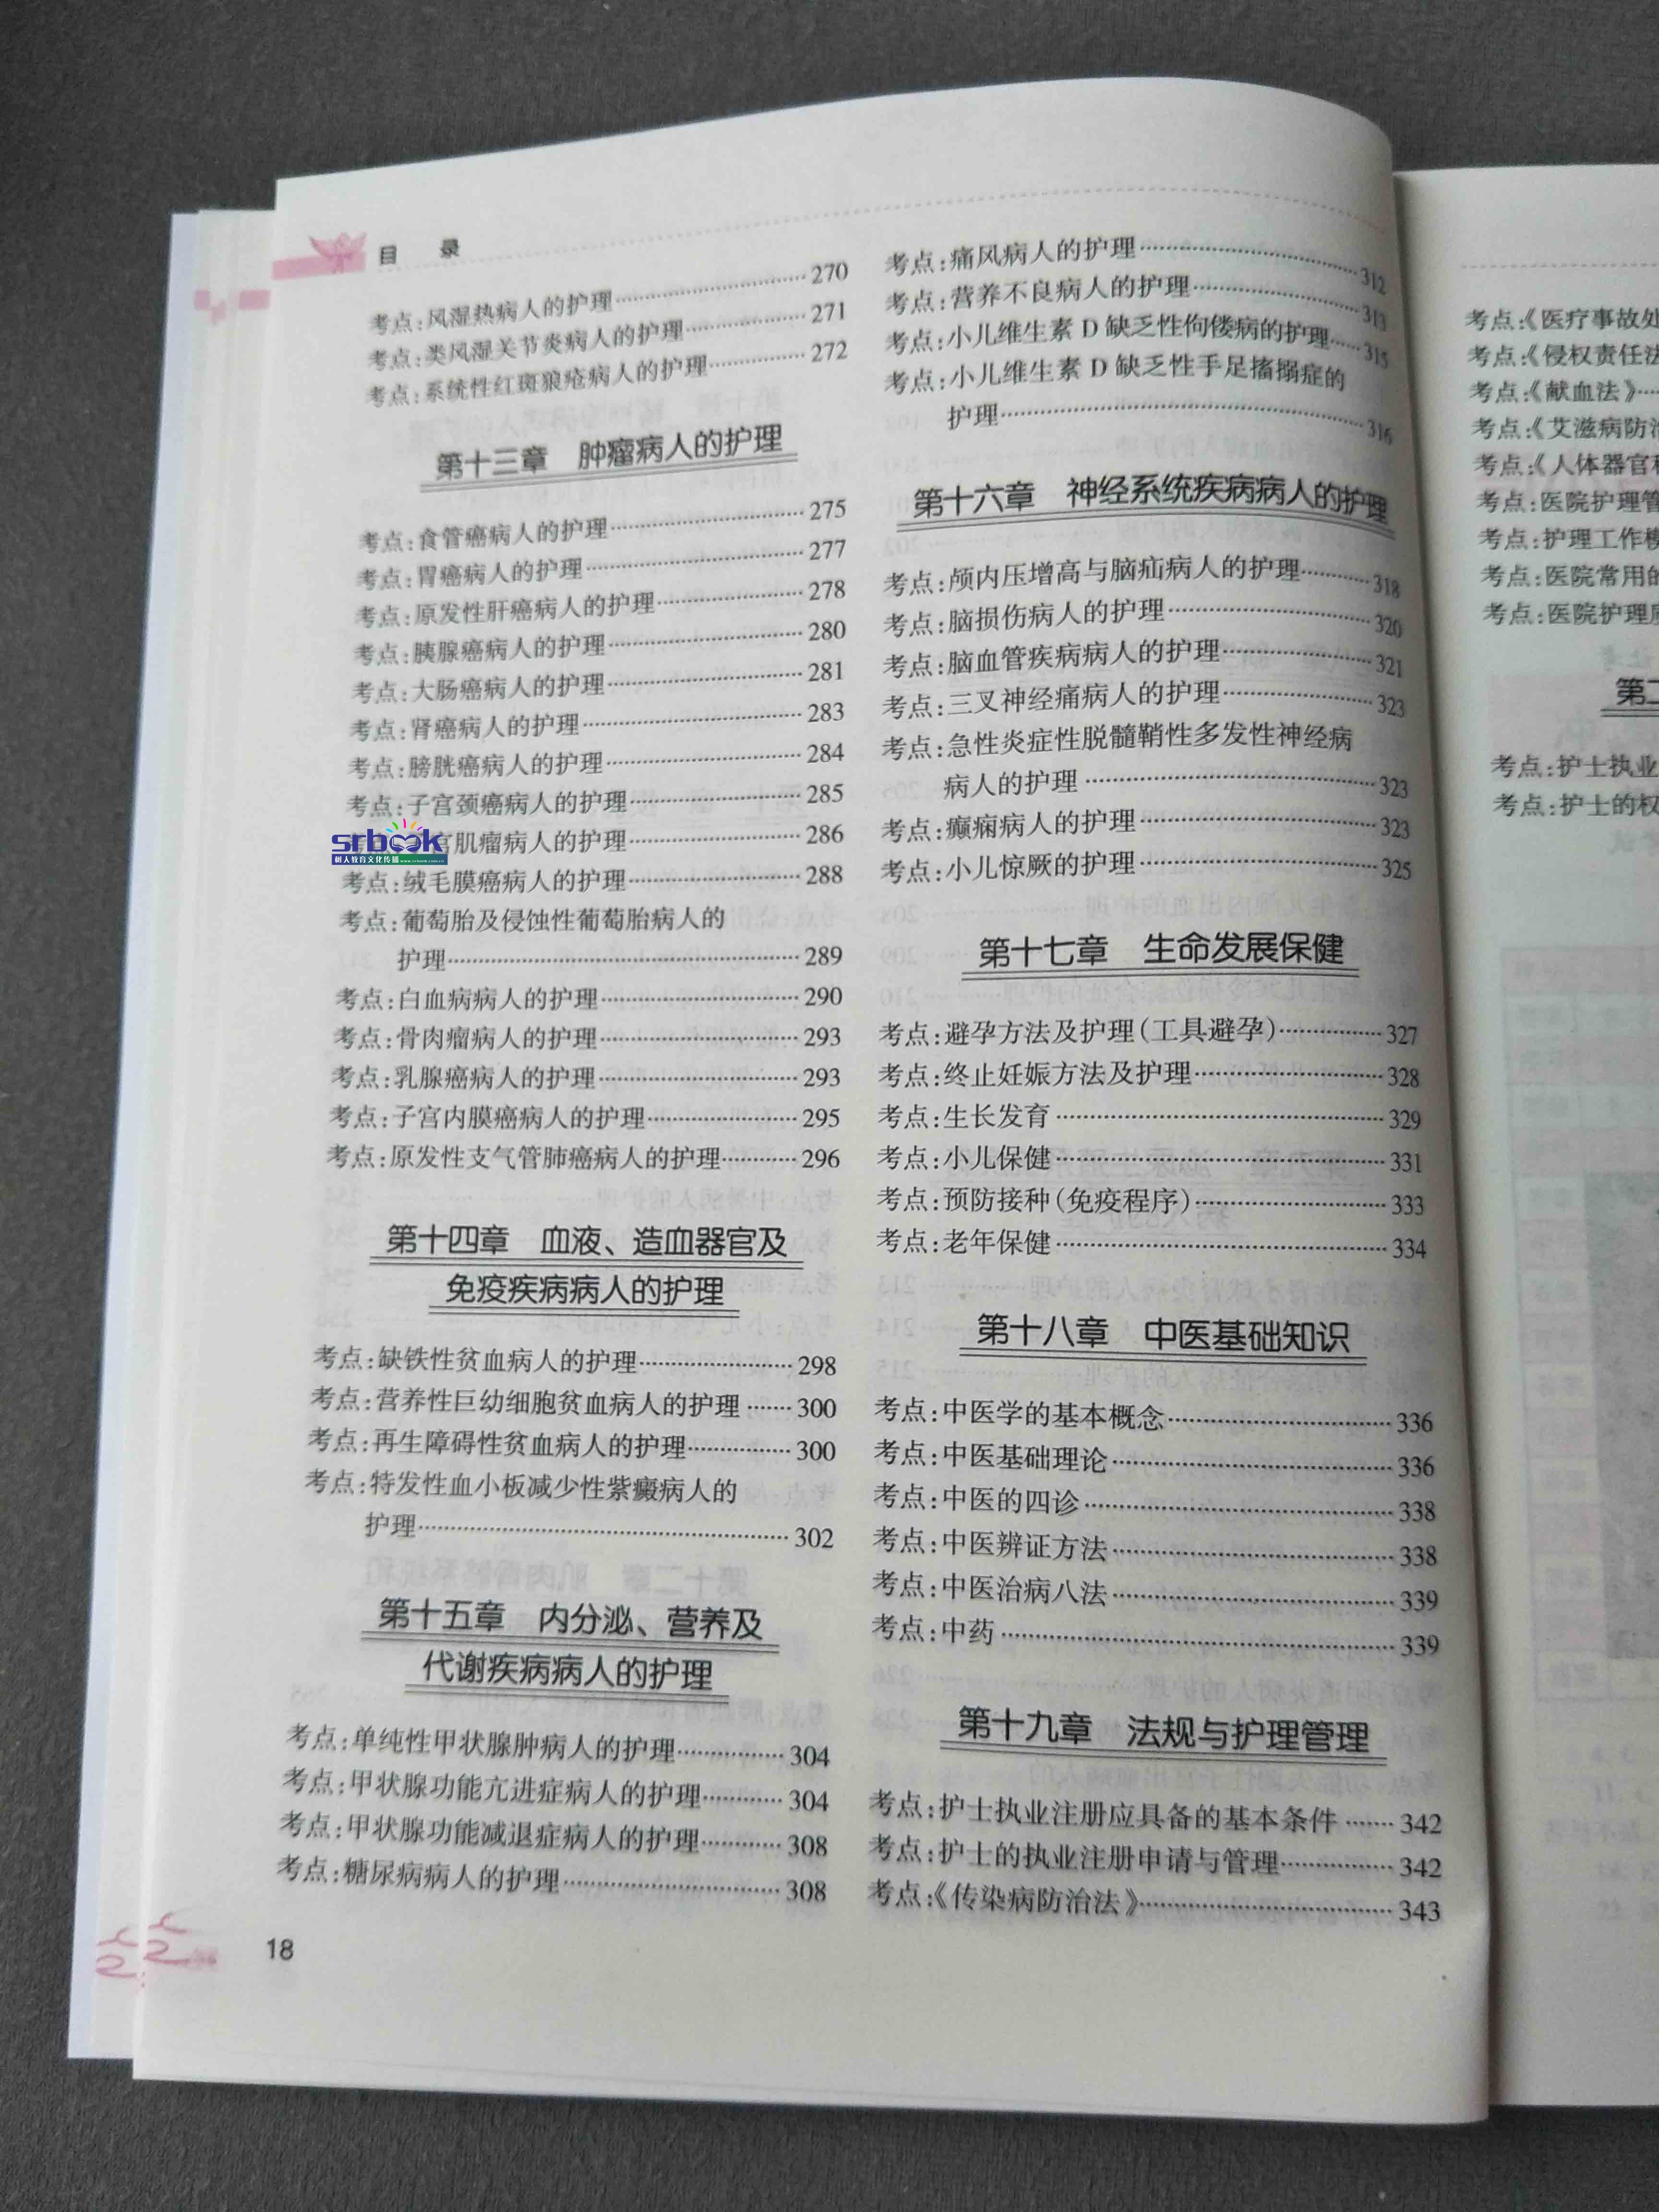 目 录
考点:风湿热病人的护理……270
考点:类风湿关节炎病人的护理……271
考点:系统性红斑狼疮病人的护理……272
第十三章 肿瘤病人的护理
考点:食管癌病人的护理……275
考点:胃癌病人的护理……277
考点:原发性肝癌病人的护理……278
考点:胰腺癌病人的护理……280
考点:大肠癌病人的护理……281
考点:肾癌病人的护理……283
考点:膀胱癌病人的护理……284
考点:子宫颈癌病人的护理……285
宫肌瘤病人的护理……286
srbook
树人教育文化传播
考点:绒毛膜癌病人的护理……288
考点:葡萄胎及侵蚀性葡萄胎病人的
护理……289
考点:白血病病人的护理……290
考点:骨肉瘤病人的护理……293
考点:乳腺癌病人的护理……293
考点:子宫内膜癌病人的护理……295
考点:原发性支气管肺癌病人的护理……296
第十四章 血液、造血器官及
免疫疾病病人的护理
考点:缺铁性贫血病人的护理……298
考点:营养性巨幼细胞贫血病人的护理……300
考点:再生障碍性贫血病人的护理……300
考点:特发性血小板减少性紫癜病人的
护理……302
第十五章 内分泌、营养及
代谢疾病病人的护理
考点:单纯性甲状腺肿病人的护理……304
考点:甲状腺功能亢进症病人的护理……304
考点:甲状腺功能减退症病人的护理……308
考点:糖尿病病人的护理……308
18
考点:痛风病人的护理……312
考点:营养不良病人的护理……313
考点:小儿维生素 D 缺乏性佝偻病的护理……315
考点:小儿维生素 D 缺乏性手足搐搦症的
护理……316
第十六章 神经系统疾病病人的护理
考点:颅内压增高与脑疝病人的护理……318
考点:脑损伤病人的护理……320
考点:脑血管疾病病人的护理……321
考点:三叉神经痛病人的护理……323
考点:急性炎症性脱髓鞘性多发性神经病
病人的护理……323
考点:癫痫病人的护理……323
考点:小儿惊厥的护理……325
第十七章 生命发展保健
考点:避孕方法及护理(工具避孕)……327
考点:终止妊娠方法及护理……328
考点:生长发育……329
考点:小儿保健……331
考点:预防接种(免疫程序)……333
考点:老年保健……334
第十八章 中医基础知识
考点:中医学的基本概念……336
考点:中医基础理论……336
考点:中医的四诊……338
考点:中医辨证方法……338
考点:中医治病八法……339
考点:中药……339
第十九章 法规与护理管理
考点:护士执业注册应具备的基本条件……342
考点:护士的执业注册申请与管理……342
考点:《传染病防治法》……343
考点:《医疗事故处
考点:《侵权责任法
考点:《献血法》……
考点:《艾滋病防治
考点:《人体器官移
考点:医院护理管
考点:护理工作模
考点:医院常用的
考点:医院护理质
第二
考点:护士执业
考点:护士的权